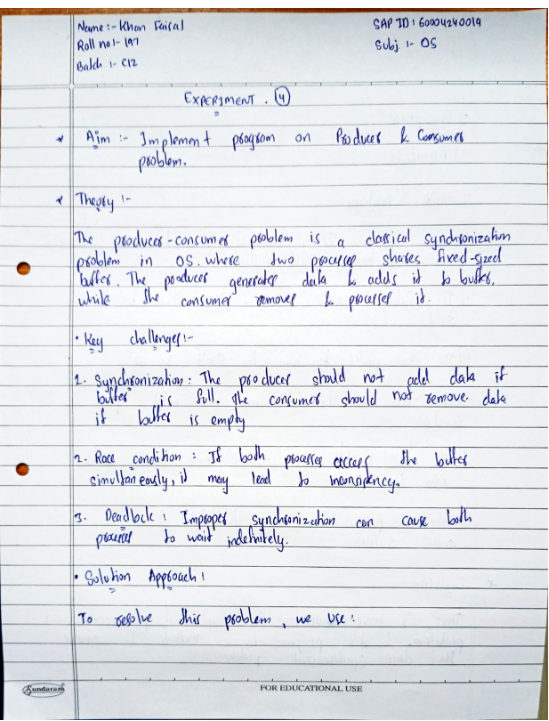 Name :- Khan Faisal
SAP ID : 60004240019
Roll no :- 197
Subj :- OS
Batch :- C12
EXPERIMENT . 4
* Aim :- Implement program on Producer & Consumer
problem.
* Theory :-
The producer-consumer problem is a classical synchronization
problem in OS. where two processes shares fixed-sized
buffer. The producer generates data & adds it to buffer.
while the consumer removes & processes it.
• Key challenges :-
1. Synchronization : The producer should not add data if
buffer is full. The consumer should not remove data
if buffer is empty
2. Race condition : If both processes access the buffer
simultaneously, it may lead to inconsistency.
3. Deadlock : Improper synchronization can cause both
process to wait indefinitely.
• Solution Approach :
To resolve this problem, we use :
Sundaram
FOR EDUCATIONAL USE